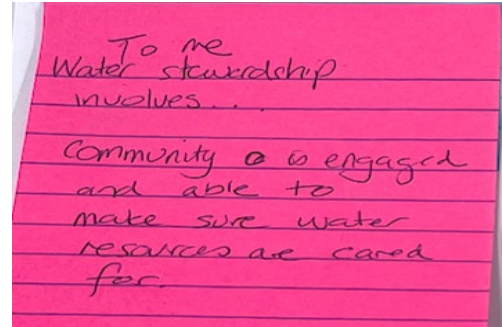 To me
Water stewardship
involves...
Community is engaged
and able to
make sure water
resources are cared
for.